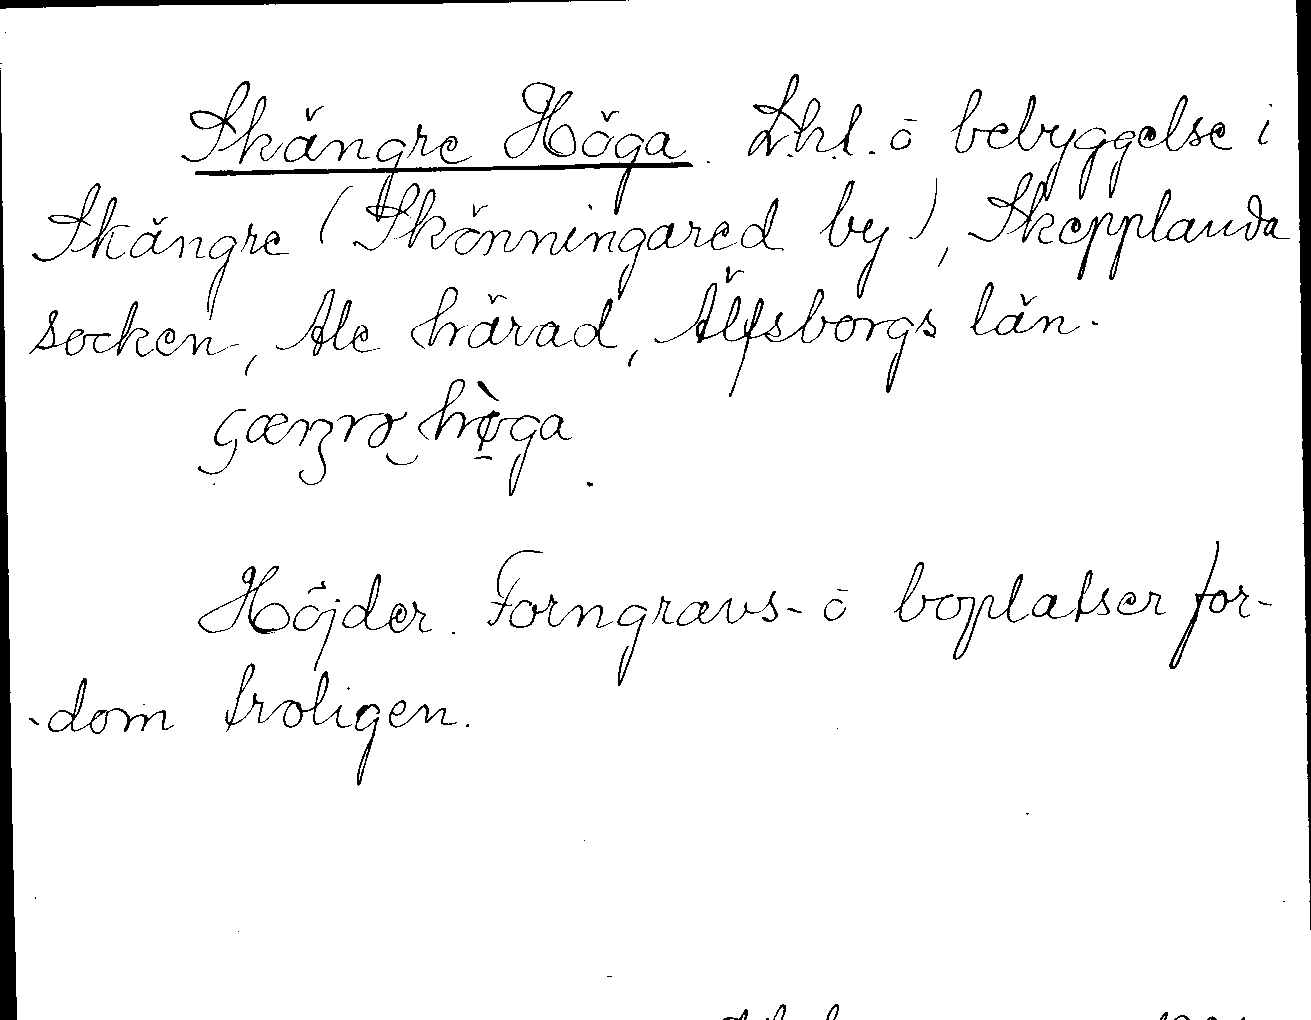 Skängre Höga. Lkl. ō bebyggelse i
Skängre (Skönningared by), Skepplanda
socken, Ale härad, Älfsborgs län.
höga.
Höjder. Forngravs- ō boplatser for-
-dom troligen.